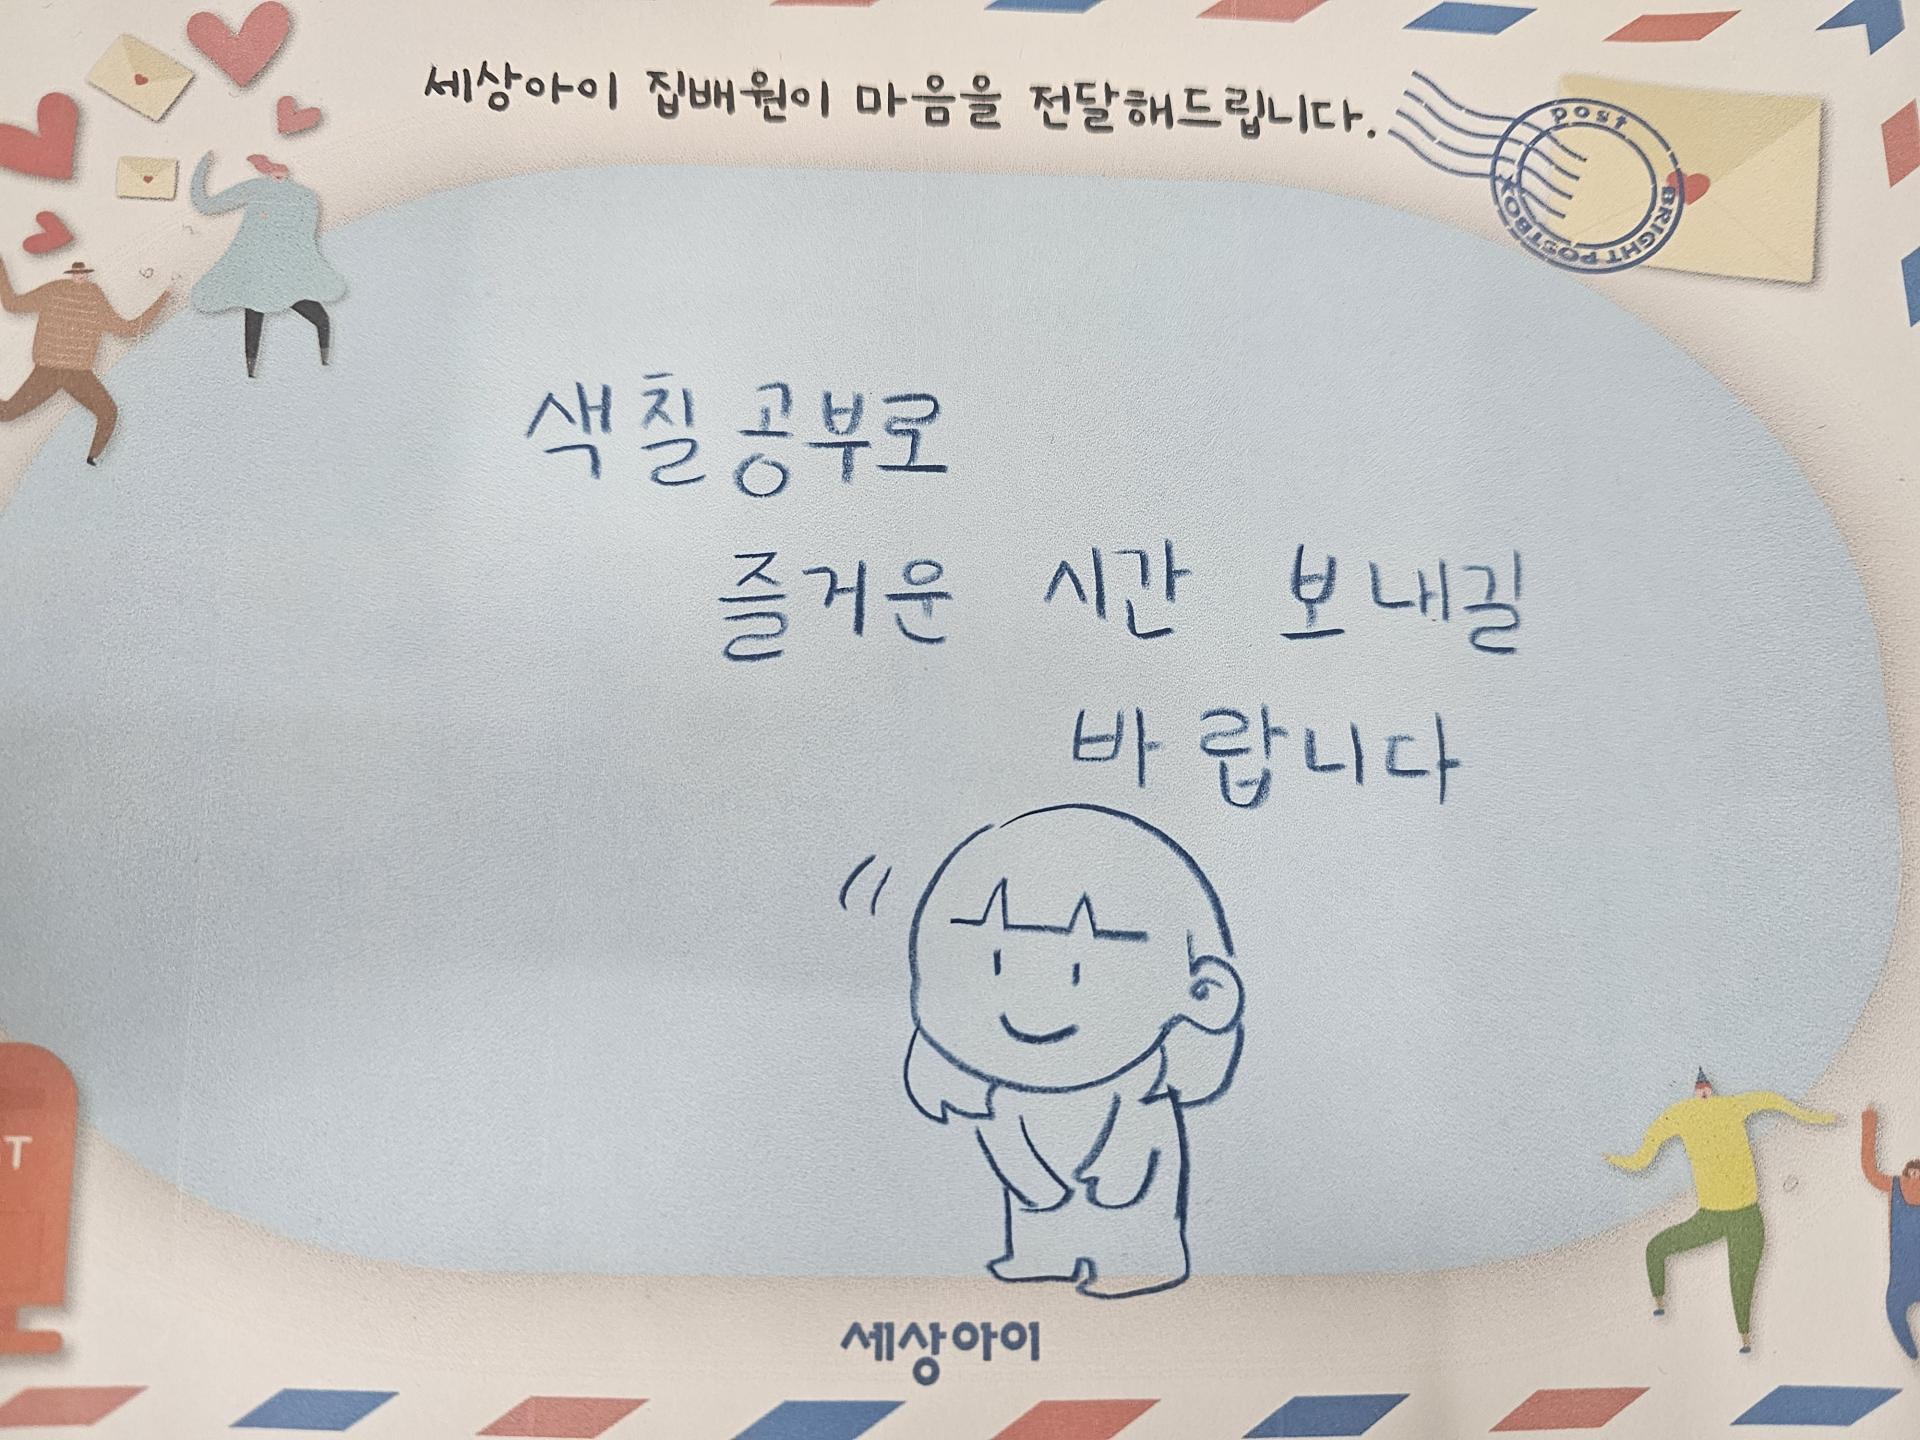 세상아이 집배원이 마음을 전달해드립니다.
post
BRIGHT POSTBOX
색칠공부로
즐거운 시간 보내길
바랍니다
세상아이